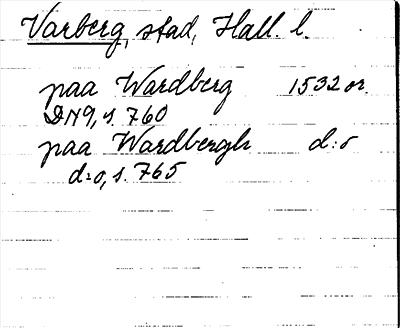 Varberg, stad, Hall. l.
paa Wardberg 1532 or.
DN9, s. 760
paa Wardbergh d:o
d:o, s. 765